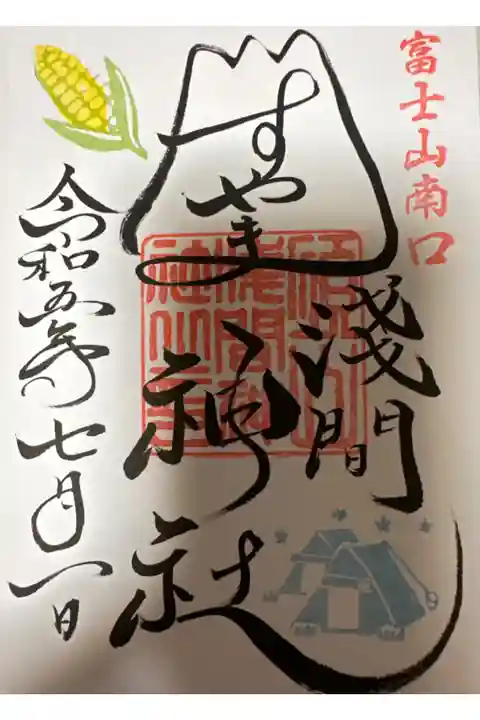 富士山南口
すやま
淺間
神社
令和五年七月一日